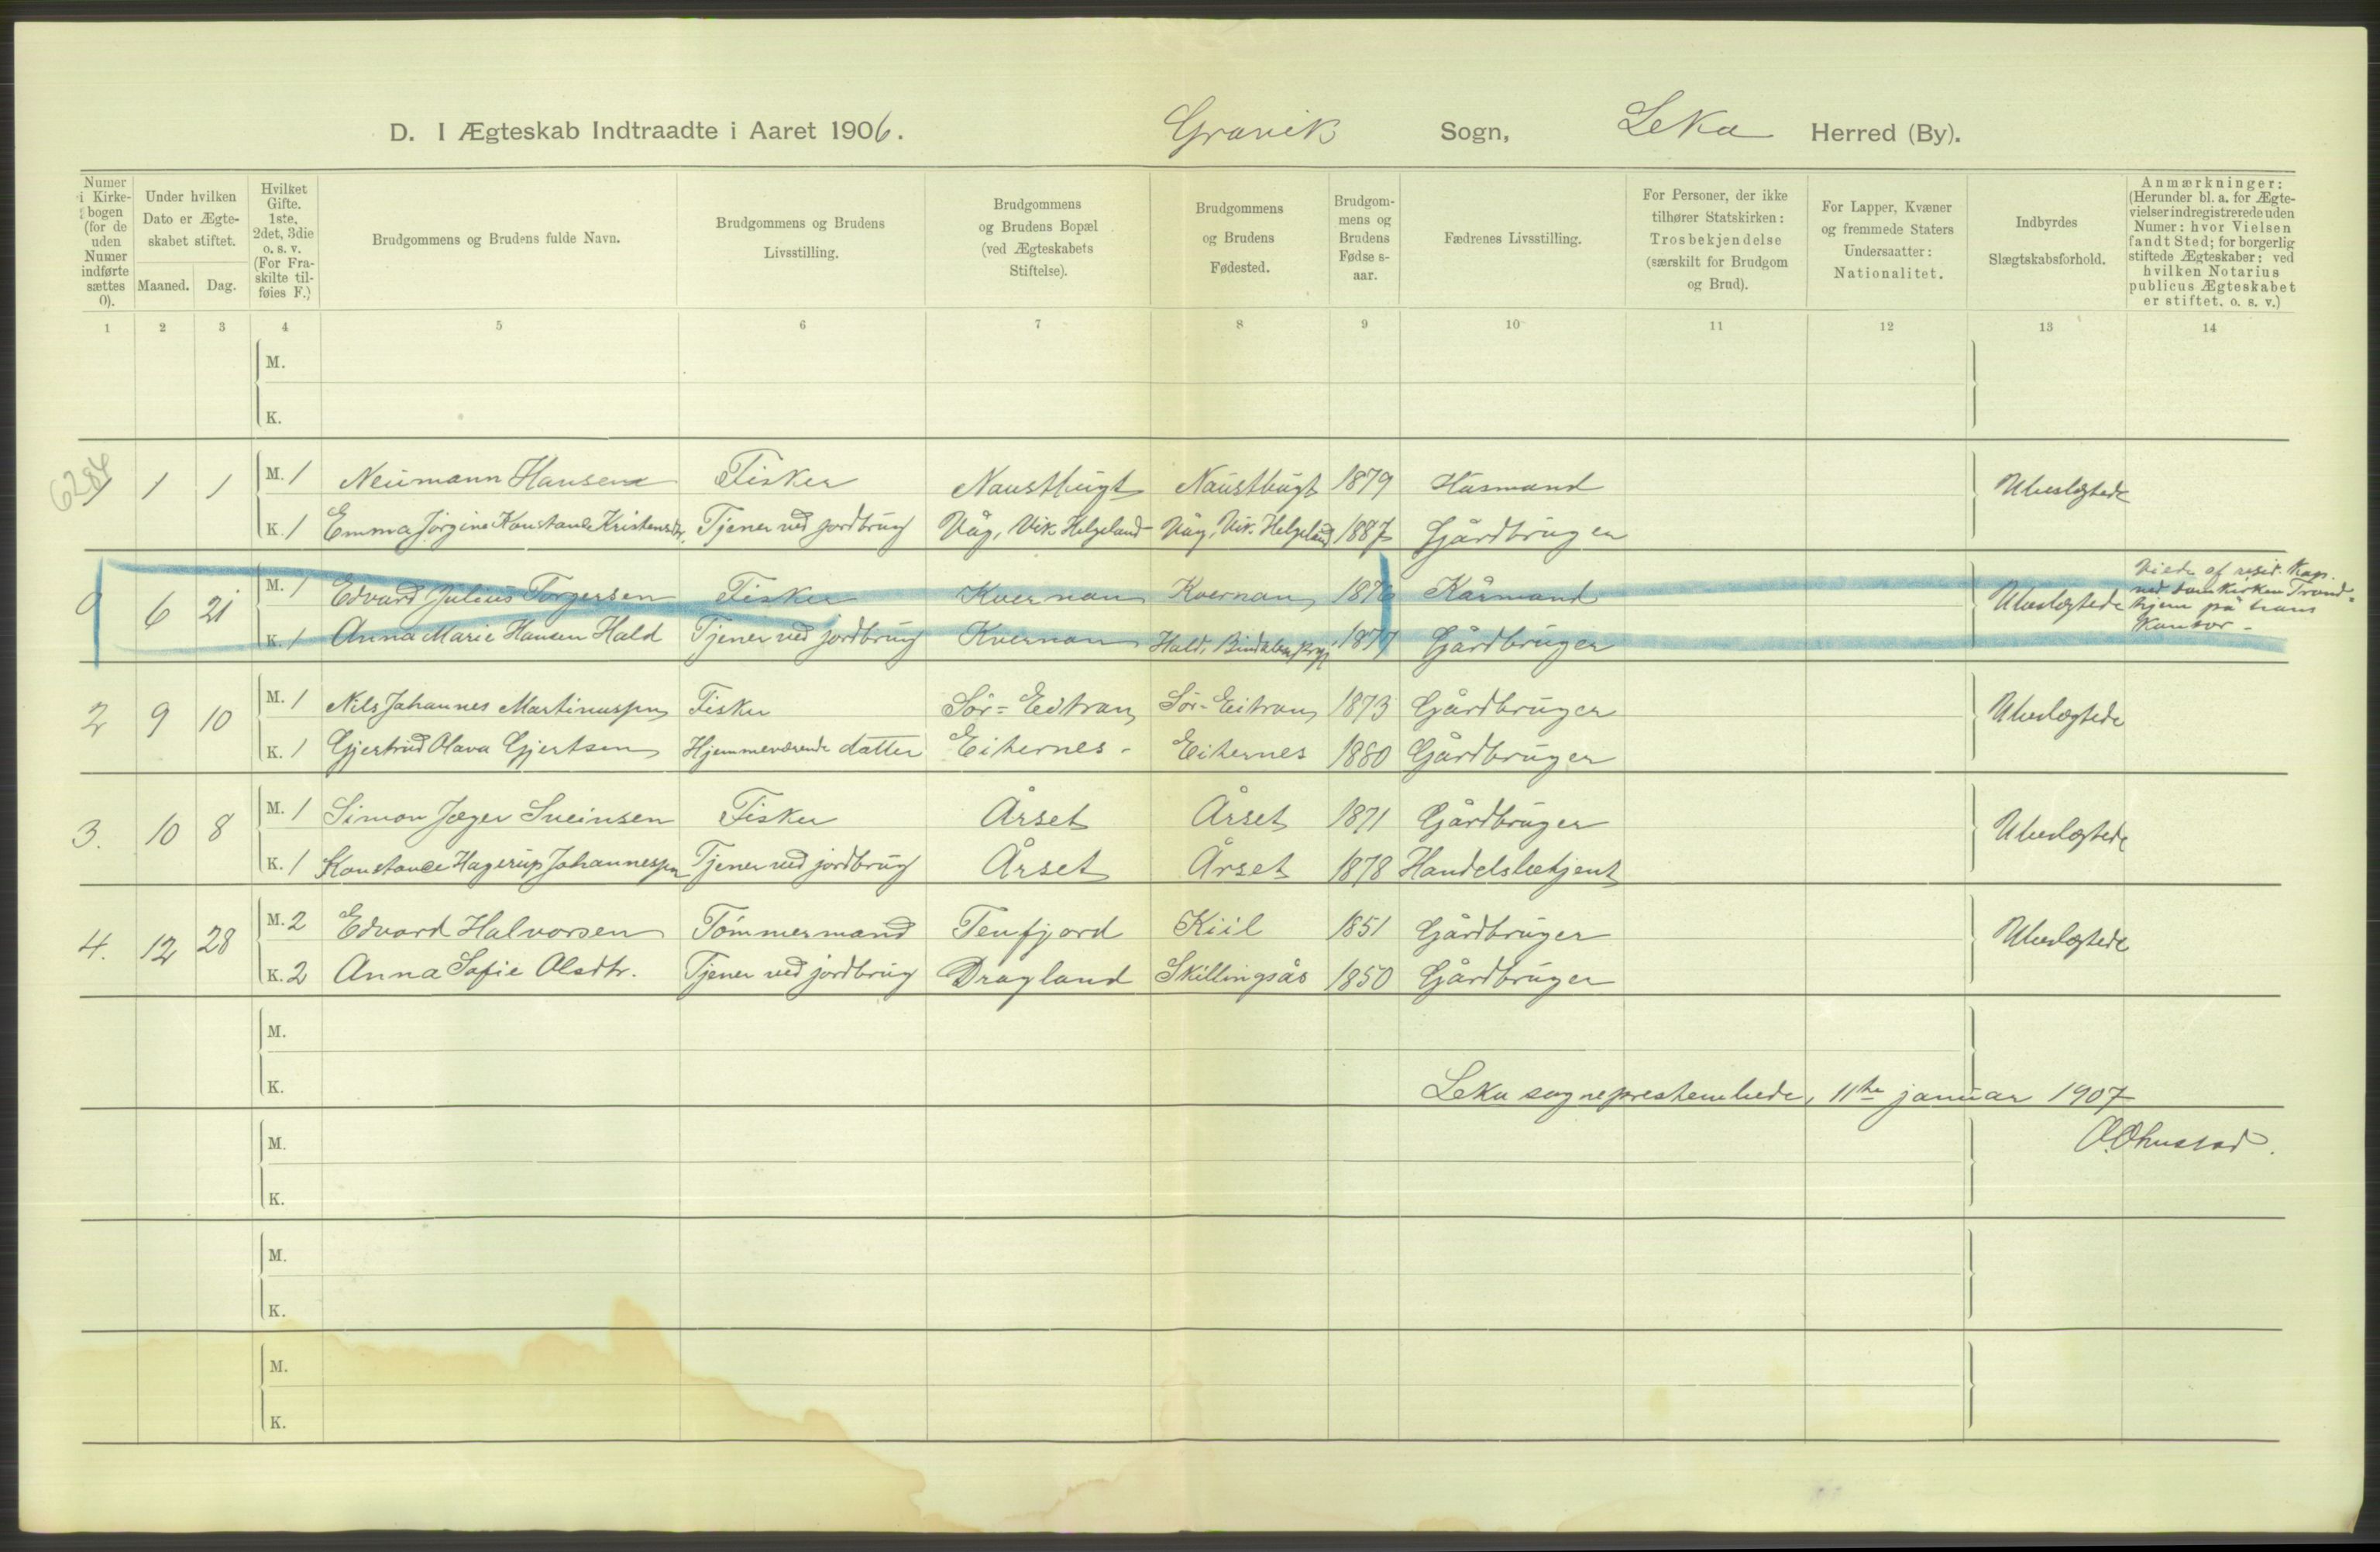 D. I Ægteskab Indtraadte i Aaret 1906. Gravik Sogn, Leka Herred (By).
Numer i Kirkebogen (for de uden Numer indførte sættes 0).
Under hvilken Dato er Ægteskabet stiftet.
Maaned. Dag.
Hvilket Gifte. 1ste, 2det, 3die o. s. v. (For Fraskilte tilføies F.)
Brudgommens og Brudens fulde Navn.
Brudgommens og Brudens Livsstilling.
Brudgommens og Brudens Bopæl (ved Ægteskabets Stiftelse).
Brudgommens og Brudens Fødested.
Brudgommens og Brudens Fødse s-aar.
Fædrenes Livsstilling.
For Personer, der ikke tilhører Statskirken: Trosbekjendelse (særskilt for Brudgom og Brud).
For Lapper, Kvæner og fremmede Staters Undersaatter: Nationalitet.
Indbyrdes Slægtskabsforhold.
Anmærkninger: (Herunder bl. a. for Ægtevielser indregistrerede uden Numer: hvor Vielsen fandt Sted; for borgerlig stiftede Ægteskaber: ved hvilken Notarius publicus Ægteskabet er stiftet. o. s. v.)
1 2 3 4 5 6 7 8 9 10 11 12 13 14
M.
K.
6284
1 1 1 M. 1 Neumann Hansen Fisker Naustbugt Naustbugt 1879 Husmand Ubeslægtede
K. 1 Emma Jørgine Konstance Kristensdtr. Tjener ved jordbrug Våg, Vik Helgeland Våg, Vik. Helgeland 1887 Gårdbruger
0 6 21 M. 1 Edvard Julius Torgersen Fisker Kvernøen Kvernøen 1876 Kårmand Ubeslægtede Viede af resid. Kap. ved domkirken Trondhjem på hans kontor -
K. 1 Anna Marie Hansen Hald Tjener ved jordbrug Kvernøen Hald, Bindalen prgj. 1877 Gårdbruger
2 9 10 M. 1 Nils Johannes Martinussen Fisker Sør-Eitran Sør-Eitran 1873 Gårdbruger Ubeslægtede
K. 1 Gjertrud Olava Gjertsen Hjemmeværende datter Eiternes - Eiternes 1880 Gårdbruger
3. 10 8 M. 1 Simon Jæger Sveinsen Fisker Årset Årset 1871 Gårdbruger Ubeslægtede
K. 1 Konstance Hagerup Johannessen Tjener ved jordbrug Årset Årset 1878 Handelsbetjent
4. 12 28 M. 2 Edvard Halvorsen Tømmermand Tenfjord Kiil 1851 Gårdbruger Ubeslægtede
K. 2 Anna Sofie Olsdtr. Tjener ved jordbrug Dragland Skillingsås 1850 Gårdbruger
M.
K.
Leka sogneprestembede, 11te januar 1907
M.
K.
M.
K.
M.
K.